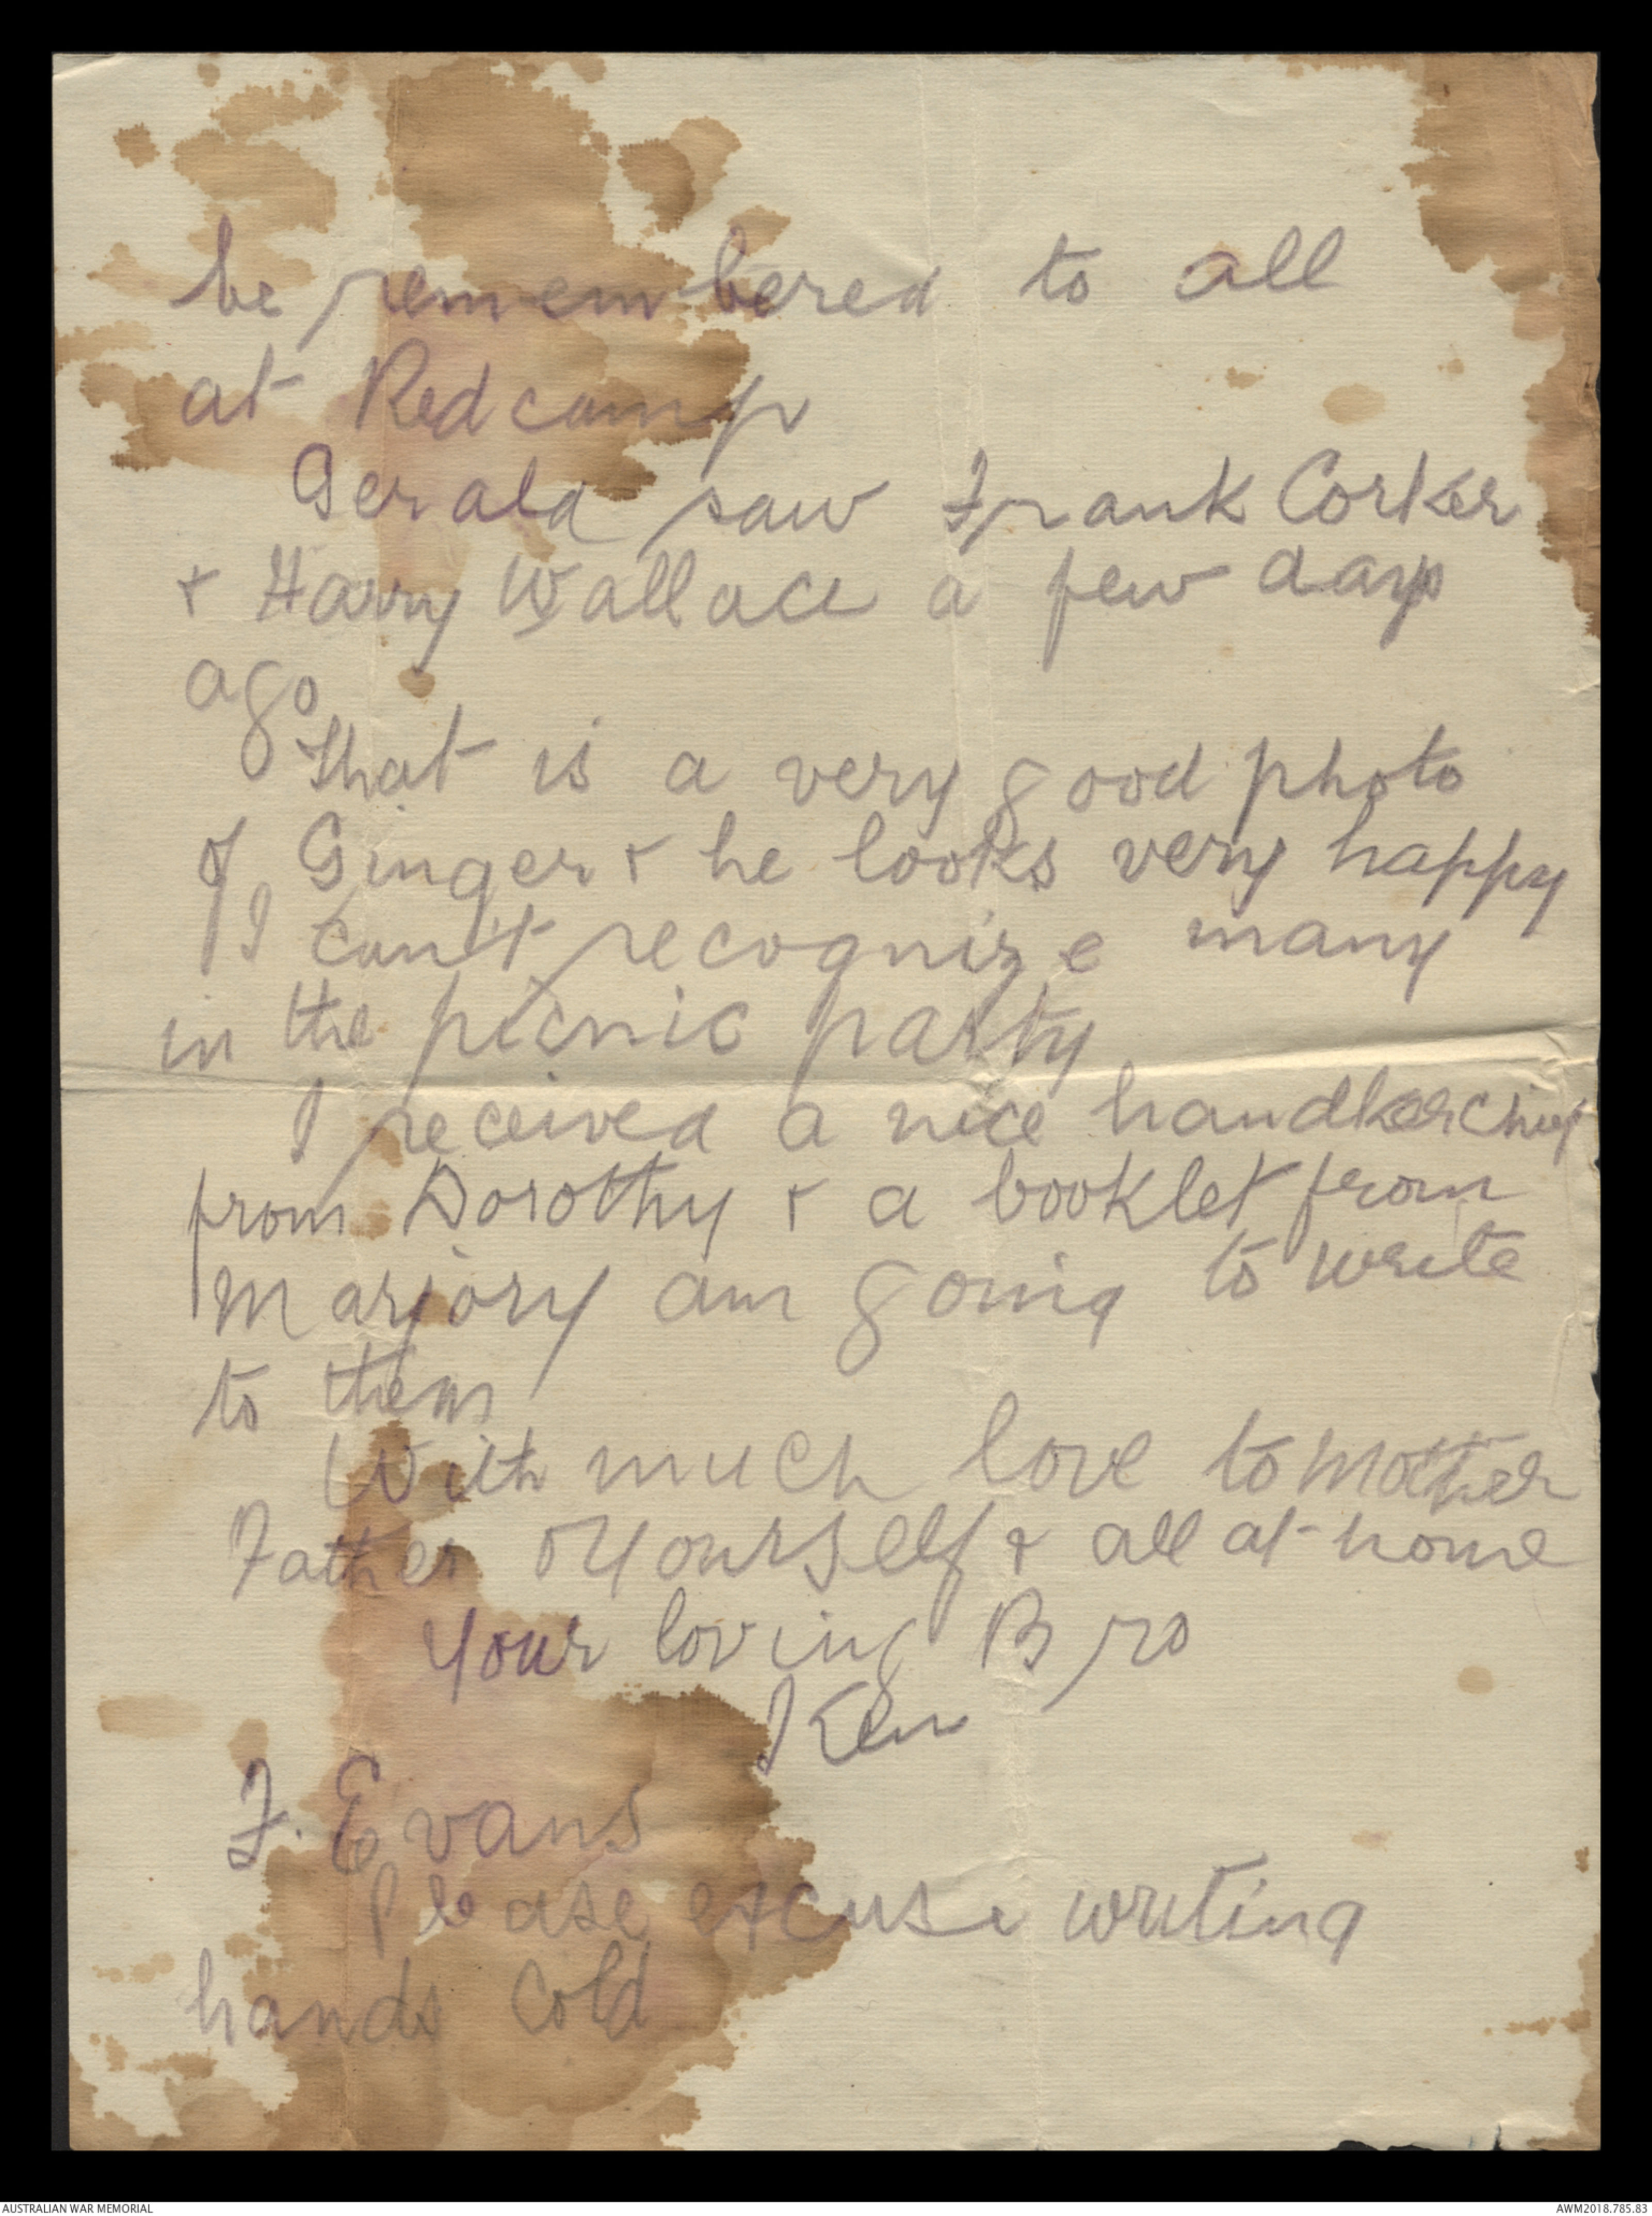 be remembered to all
at Redcamp
Gerald saw Frank Corker
+ Harry Wallace a few days
ago
That is a very good photo
of Ginger + he looks very happy
I can't recognize many
in the picnic party
I received a nice handkerchief
from Dorothy + a booklet from
Marjory am going to write
to them
With much love to Mother
Father Yourself + all at home
Your loving Bro
Ken
F. Evans
Please excuse writing
hands cold
AUSTRALIAN WAR MEMORIAL
AWM2018.785.83